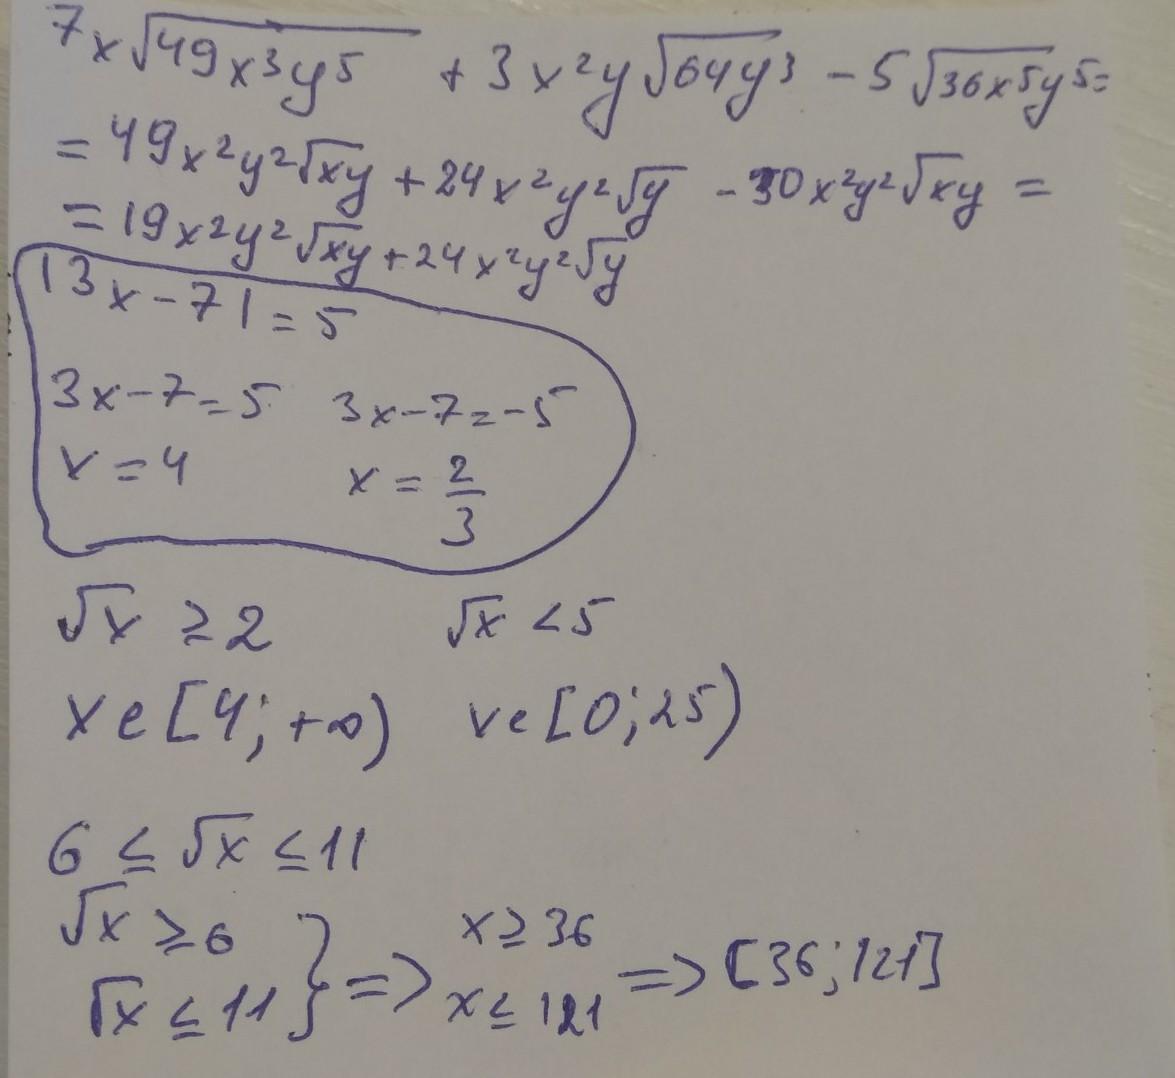 7x√49x³y⁵ + 3x²y√64y³ - 5√36x⁵y⁵=
= 49x²y²√xy + 24x²y²√y - 30x²y²√xy =
= 19x²y²√xy + 24x²y²√y
|3x-7| = 5
3x-7=5 3x-7=-5
x=4 x = 2/3
√x ≥ 2 √x < 5
xe[4;+∞) xe[0;25)
6 ≤ √x ≤ 11
√x ≥ 6 } => x ≥ 36 => [36;121]
√x ≤ 11 x ≤ 121